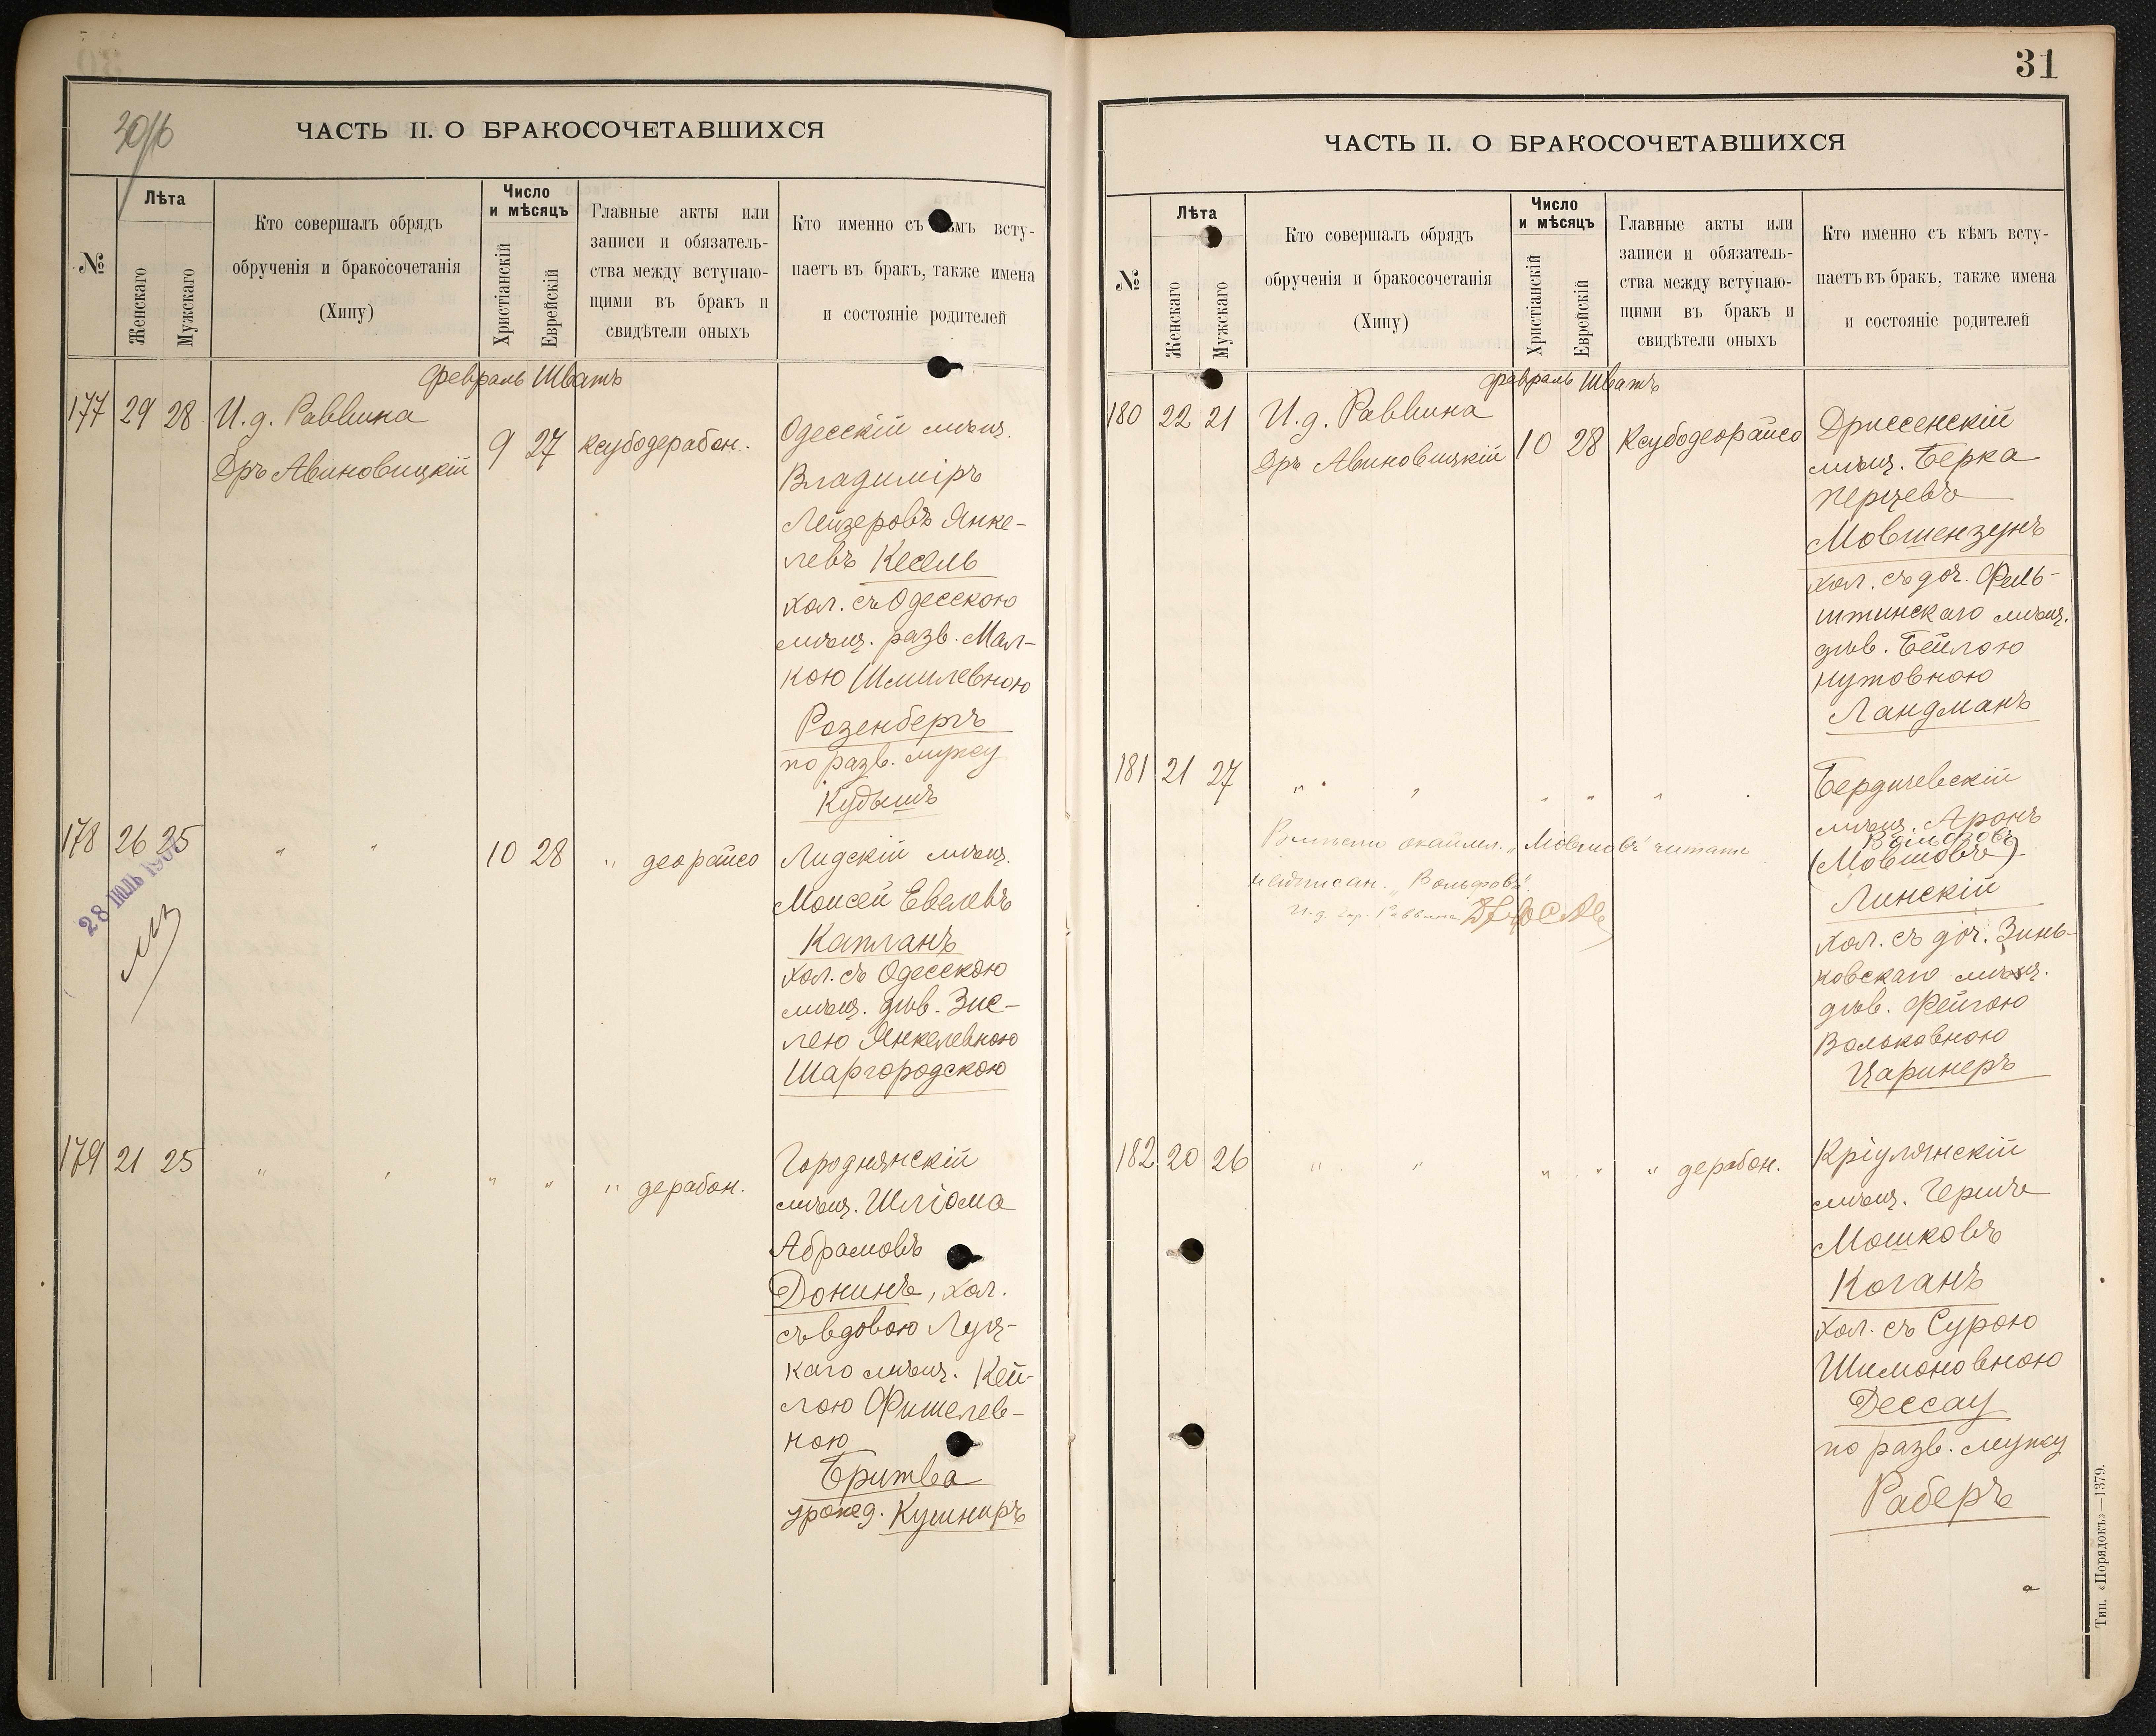 30/16
ЧАСТЬ II. О БРАКОСОЧЕТАВШИХСЯ
№
Лѣта
Женскаго
Мужскаго
Кто совершалъ обрядъ
обрученія и бракосочетанія
(Хипу)
Число
и мѣсяцъ
Христіанскій
Еврейскій
Главные акты или
записи и обязатель-
ства между вступаю-
щими въ бракъ и
свидѣтели оныхъ
Кто именно съ кѣмъ всту-
паетъ въ бракъ, также имена
и состояніе родителей
Февраль Шватъ
177 29 28 И. д. Раввина
Дръ Авиновицкій
9 27 Ксубодерабон.
Одесскій мѣщ.
Владиміръ
Лейзеровъ Янке-
левъ Кесель
хол. съ Одесскою
мѣщ. разв. Мал-
кою Шмилевною
Розенбергъ
по разв. мужу
Кудышъ
178 26 25 " " 10 28 " деорайсо
Лидскій мѣщ.
Моисей Евелевъ
Капланъ
хол. съ Одесскою
мѣщ. дѣв. Зис-
лею Янкелевною
Шаргородскою
28 ІЮЛЬ
179 21 25 " " " " " дерабон.
Городнянскій
мѣщ. Шліома
Абрамовъ
Донинъ, хол.
съ вдовою Луц-
каго мѣщ. Кей-
лою Фишелев-
ною
Бритва
урожд. Кушниръ
31
ЧАСТЬ II. О БРАКОСОЧЕТАВШИХСЯ
№
Лѣта
Женскаго
Мужскаго
Кто совершалъ обрядъ
обрученія и бракосочетанія
(Хипу)
Число
и мѣсяцъ
Христіанскій
Еврейскій
Главные акты или
записи и обязатель-
ства между вступаю-
щими въ бракъ и
свидѣтели оныхъ
Кто именно съ кѣмъ всту-
паетъ въ бракъ, также имена
и состояніе родителей
Февраль Шватъ
180 22 21 И. д. Раввина
Дръ Авиновицкій
10 28 Ксубодеорайсо
Дриссенскій
мѣщ. Берка
Перцевъ
Мовшензунъ
хол. съ доч. Фель-
штинскаго мѣщ.
дѣв. Бейлою
Нутовною
Ландманъ
181 21 27 " " " " "
Бердичевскій
мѣщ. Аронъ
Вольфовъ
(Мовшовъ)
Линскій
хол. съ доч. Зинь-
ковскаго мѣщ.
дѣв. Фейгою
Вольковною
Царинеръ
Вмѣсто окаймл. "Мовшовъ" читать
надписан. "Вольфовъ".
И. д. Гор. Раввина
182 20 26 " " " " " дерабон.
Кріулянскій
мѣщ. Гершъ
Мошковъ
Коганъ
хол. съ Сурою
Шимоновною
Дессау
по разв. мужу
Раберъ
Тип. «Порядокъ»—1379.